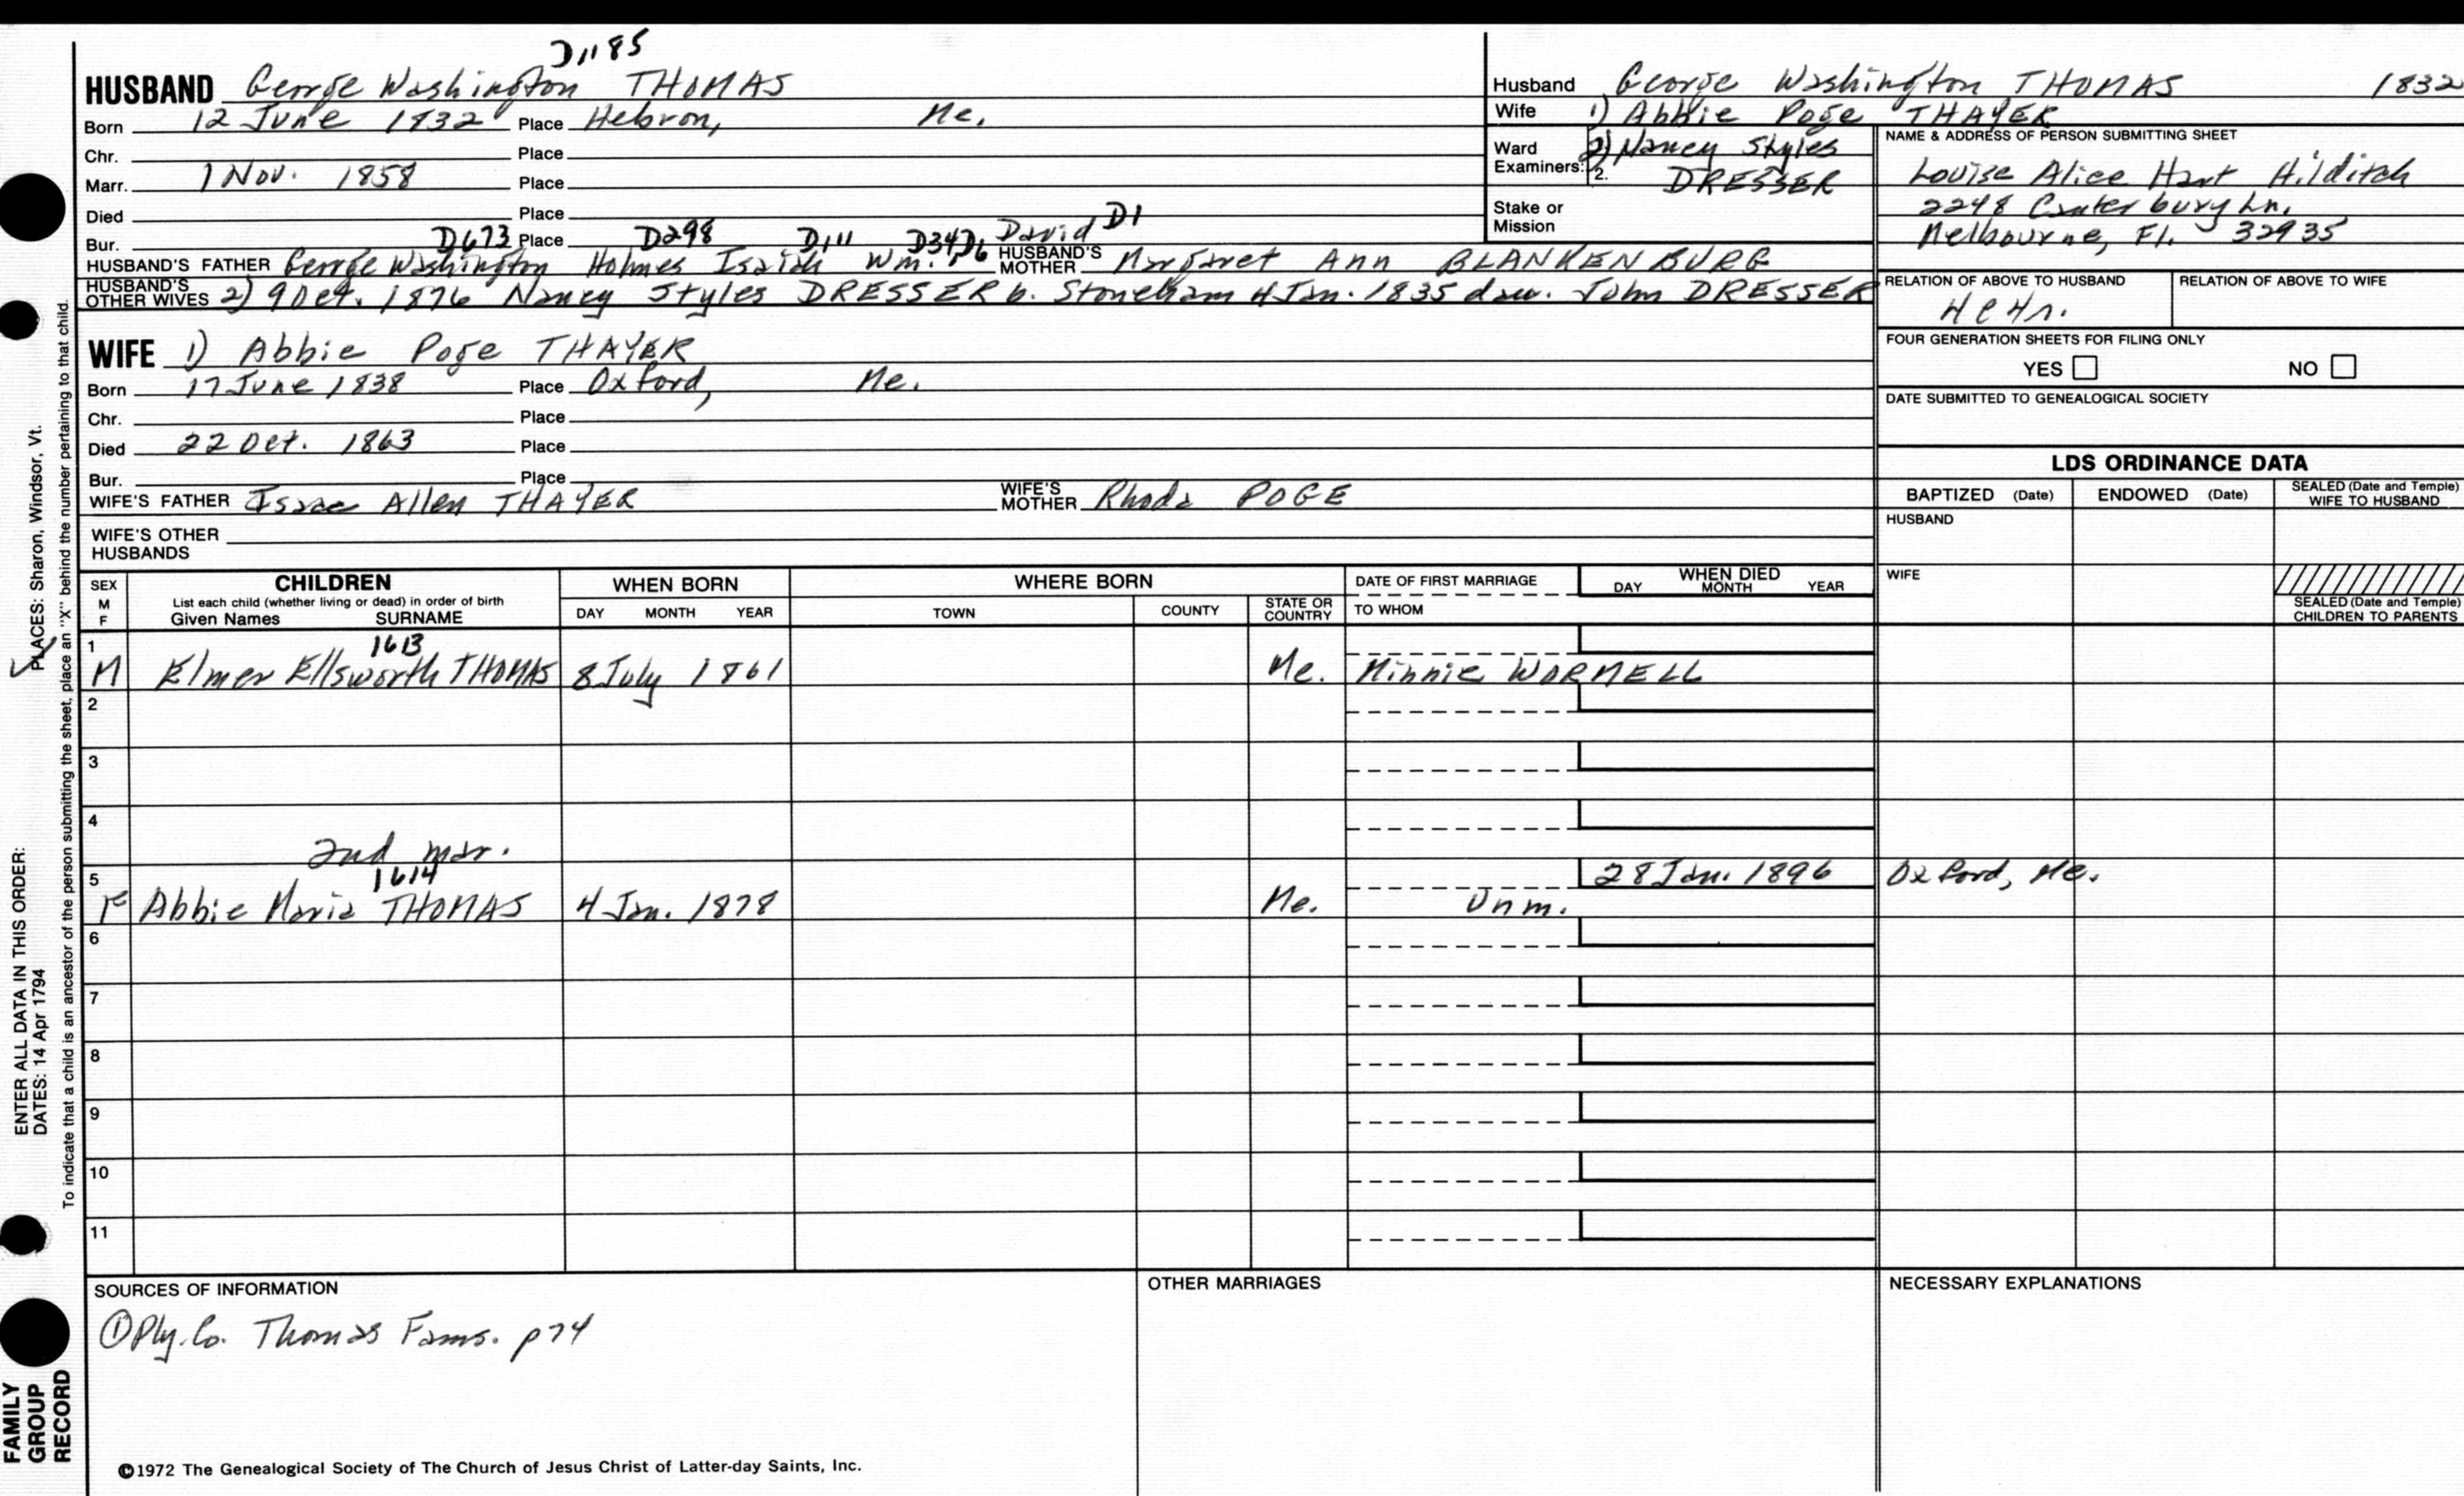 D1185
HUSBAND George Washington THOMAS
Born 12 June 1832 Place Hebron, Me.
Chr. Place
Marr. 1 Nov. 1858 Place
Died Place
Bur. Place
D673 D298 D111 D34 D6 David D1
HUSBAND'S FATHER George Washington Holmes Isaiah Wm. HUSBAND'S MOTHER Margaret Ann BLANKENBURG
HUSBAND'S OTHER WIVES 2) 9 Oct. 1876 Nancy Styles DRESSER b. Stoneham 4 Jan. 1835 dau. John DRESSER
WIFE 1) Abbie Poge THAYER
Born 17 June 1838 Place Oxford, Me.
Chr. Place
Died 22 Oct. 1863 Place
Bur. Place
WIFE'S FATHER Isaac Allen THAYER WIFE'S MOTHER Rhoda POGE
WIFE'S OTHER HUSBANDS
Husband George Washington THOMAS 1832
Wife 1) Abbie Poge THAYER
Ward 2) Nancy Styles
Examiners: 2. DRESSER
Stake or Mission
NAME & ADDRESS OF PERSON SUBMITTING SHEET
Louise Alice Hart Hilditch
2248 Canterbury Ln.
Melbourne, Fl. 32935
RELATION OF ABOVE TO HUSBAND RELATION OF ABOVE TO WIFE
FOUR GENERATION SHEETS FOR FILING ONLY
YES NO
DATE SUBMITTED TO GENEALOGICAL SOCIETY
LDS ORDINANCE DATA
BAPTIZED (Date) ENDOWED (Date) SEALED (Date and Temple) WIFE TO HUSBAND
HUSBAND
WIFE
SEALED (Date and Temple) CHILDREN TO PARENTS
SEX M F CHILDREN WHEN BORN WHERE BORN DATE OF FIRST MARRIAGE WHEN DIED
List each child (whether living or dead) in order of birth
Given Names SURNAME DAY MONTH YEAR TOWN COUNTY STATE OR COUNTRY TO WHOM DAY MONTH YEAR
1 1613
M Elmer Ellsworth THOMAS 8 July 1861 Me. Minnie WORMELL
2
3
4
2nd mar.
5 1614 28 Jan. 1896 Oxford, Me.
F Abbie Maria THOMAS 4 Jan. 1878 Me. Unm.
6
7
8
9
10
11
SOURCES OF INFORMATION OTHER MARRIAGES NECESSARY EXPLANATIONS
① Ply. Co. Thomas Fams. p74
©1972 The Genealogical Society of The Church of Jesus Christ of Latter-day Saints, Inc.
ENTER ALL DATA IN THIS ORDER: PLACES: Sharon, Windsor, Vt.
DATES: 14 Apr 1794
To indicate that a child is an ancestor of the person submitting the sheet, place an "X" behind the number pertaining to that child.
FAMILY GROUP RECORD